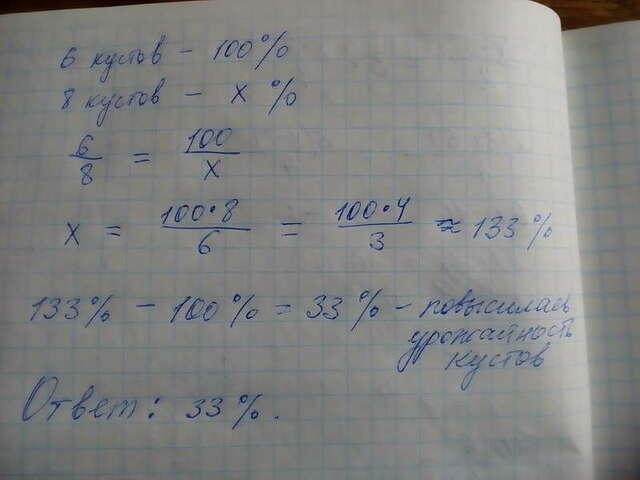 6 кустов - 100%
8 кустов - x %
6/8 = 100/x
x = 100·8/6 = 100·4/3 ≈ 133%
133% - 100% = 33% - повысилась
урожайность
кустов
Ответ: 33%.